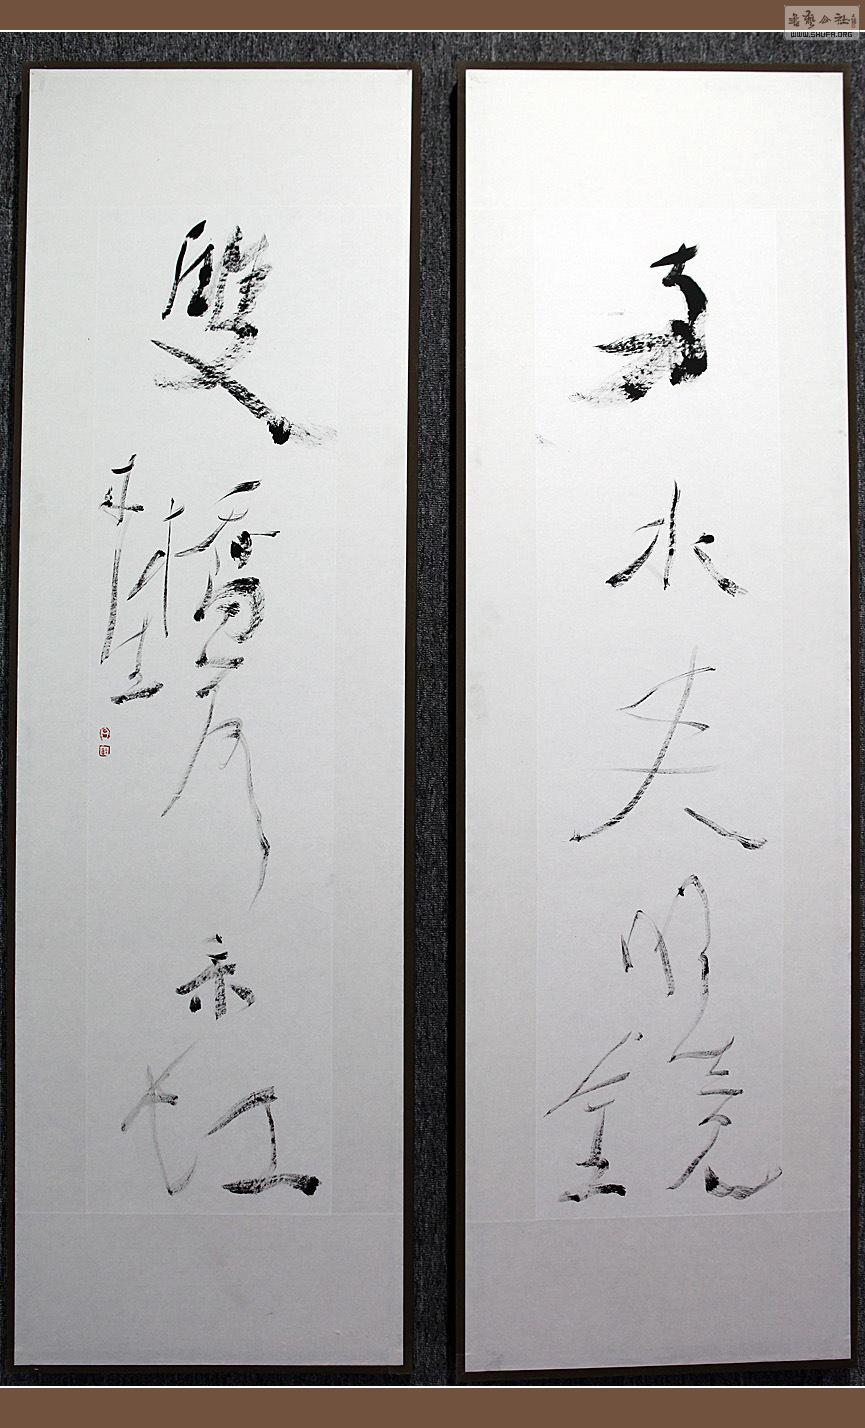 書藝公社
WWW.SHUFA.ORG
兩水夾明鏡
雙橋落采虹